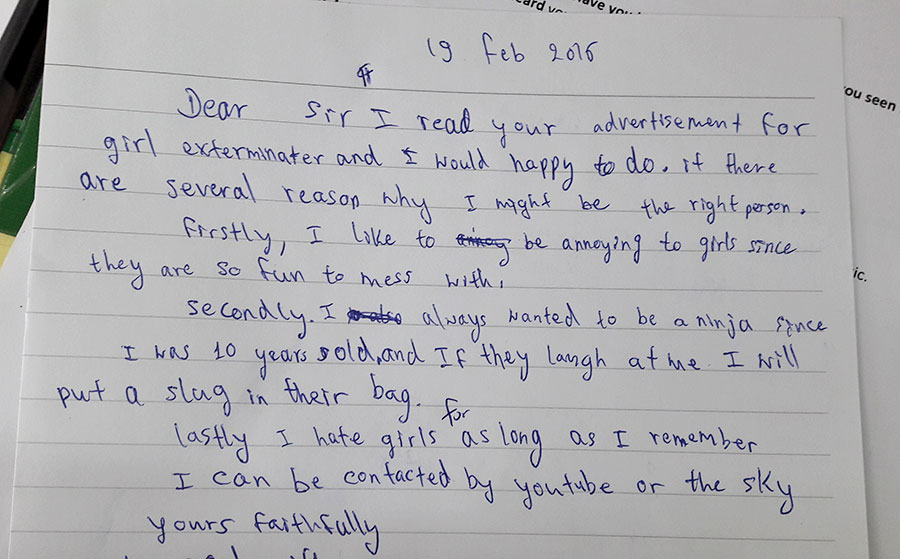 ard
ave you
ou seen
ic.
19 Feb 2016
Dear Sir I read your advertisement for
girl exterminater and I would happy to do. if there
are several reason why I might be the right person.
Firstly, I like to annoy be annoying to girls since
they are so fun to mess with.
secondly. I also always wanted to be a ninja since
I was 10 years sold, and If they laugh at me. I will
put a slug in their bag.
lastly I hate girls for as long as I remember
I can be contacted by youtube or the sky
yours faithfully